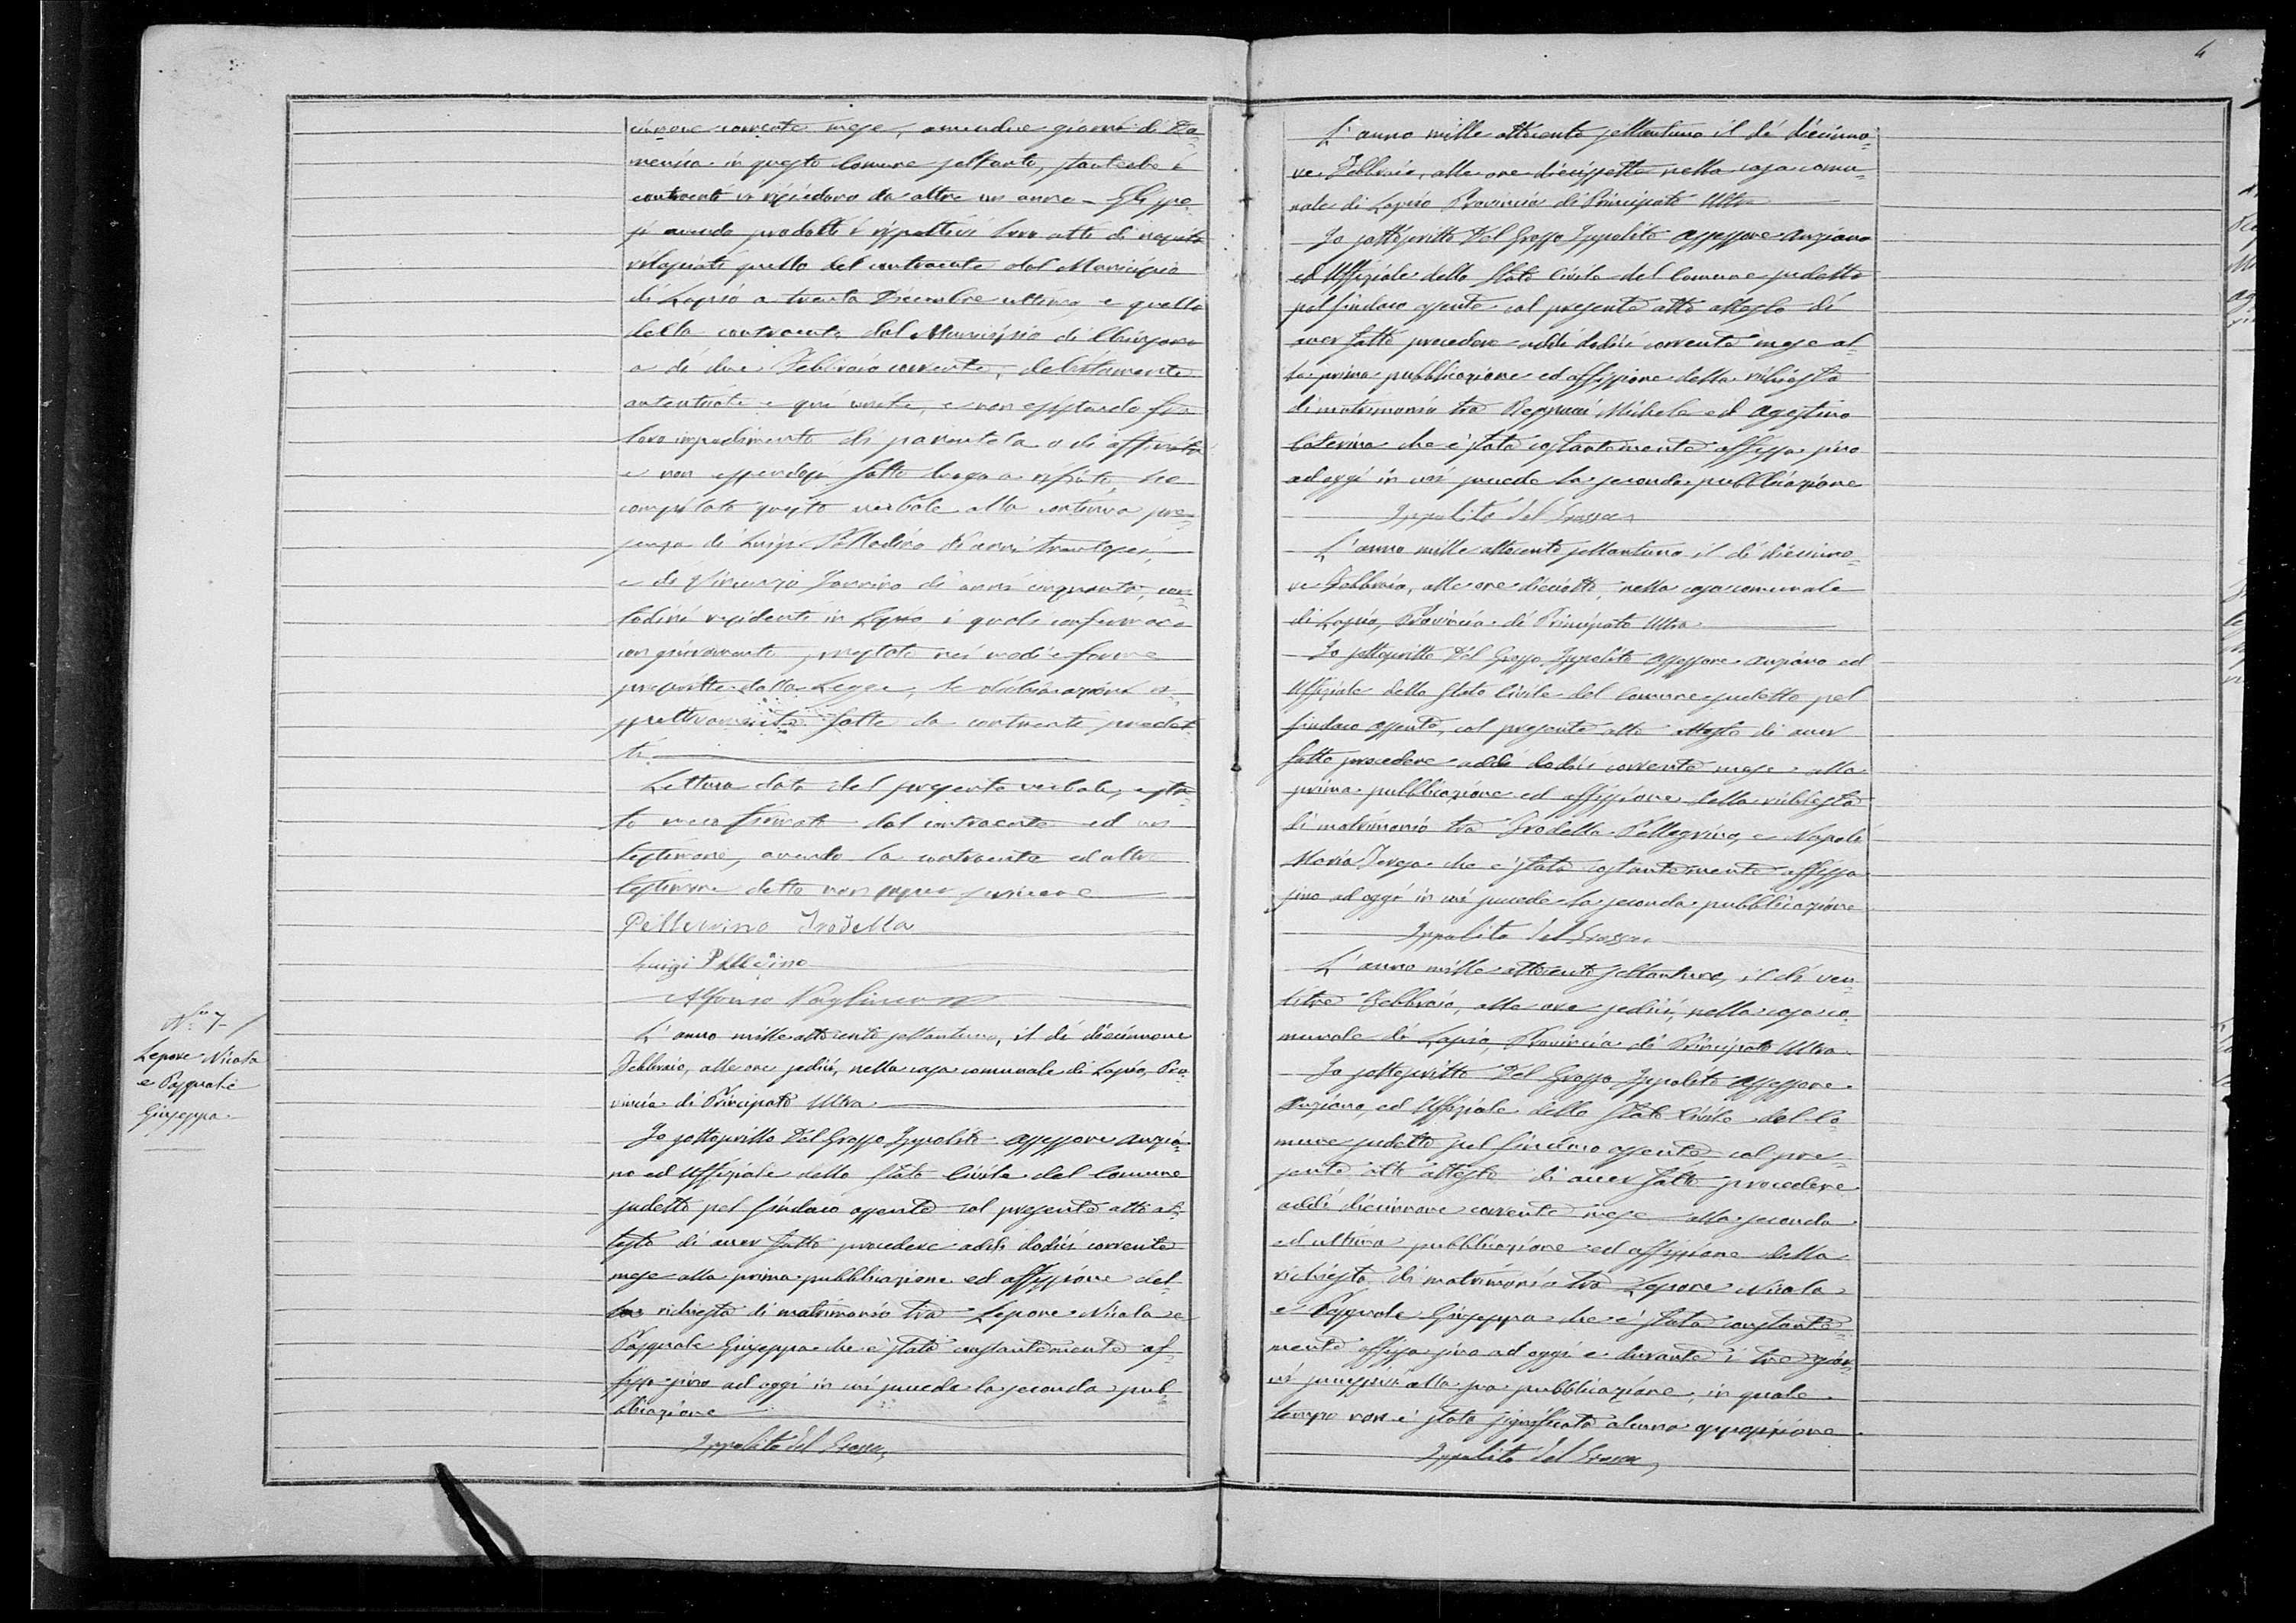 cinnove corrente mese, amendue giorni di Do=
menica in questo Comune soltanto, stanteché i
contraenti vi risiedono da oltre un anno - Gli spo=
si avendo prodotti i rispettivi loro atti di nascita
rilasciati quello del contraente dal Municipio
di Lapio a trenta Dicembre ultimo, e quello
della contraente dal Municipio di
a dì due Febbraio corrente, debitamente
autenticati e qui uniti, e non esistendo fra
loro impedimento di parentela o di affinità
e non essendosi fatto luogo a rifiuto, si è
compilato questo verbale alla continua pre=
senza di Luigi Palladino d'anni trentasei,
e di Vincenzo Iannino di anni cinquanta, con=
tadini residenti in Lapio i quali confermano
con giuramento, prestato nei modi e forme
prescritte dalla Legge, le dichiarazioni ri=
spettivamente fatte da contraenti predet=
ti
Lettura data del presente verbale, è sta=
to firmato dal contraente ed un
testimone, avendo la contraente ed altro
testimone detto non sapere scrivere
Pellegrino Trodella
Luigi Palladino
Alfonso Pagliuca
N.° 7
Lepore Nicola
e Pasquale
Giuseppa
L'anno mille ottocento settantuno, il dì diecinnove
Febbraio, alle ore sedici, nella casa comunale di Lapio, Pro=
vincia di Principato Ultra
Io sottoscritto Del Grosso Ippolito Assessore Anzia=
no ed Uffiziale dello Stato Civile del Comune
sudetto pel Sindaco assente col presente atto at=
testo di aver fatto procedere addì dodici corrente
mese alla prima pubblicazione ed affissione del=
la richiesta di matrimonio tra Lepore Nicola e
Pasquale Giuseppa che è stata costantemente af=
fissa sino ad oggi in cui succede la seconda pub=
blicazione
Ippolito del Grosso
4
L'anno mille ottocento settantuno il dì diecinno=
ve Febbraio, alle ore diecissette nella casa comu=
nale di Lapio Provincia di Principato Ultra
Io sottoscritto Del Grosso Ippolito Assessore Anziano
ed Uffiziale dello Stato Civile del Comune sudetto
pel Sindaco assente col presente atto attesto di
aver fatto procedere addì dodici corrente mese al=
la prima pubblicazione ed affissione della richiesta
di matrimonio tra Michele ed Agostino
Caterina che è stata costantemente affissa sino
ad oggi in cui succede la seconda pubblicazione
Ippolito del Grosso
L'anno mille ottocento settantuno il dì diecinno=
ve Febbraio, alle ore dieciotto, nella casa comunale
di Lapio, Provincia di Principato Ultra
Io sottoscritto Del Grosso Ippolito Assessore Anziano ed
Uffiziale dello Stato Civile del Comune sudetto pel
Sindaco assente, col presente atto attesto di aver
fatto procedere addì dodici corrente mese alla
prima pubblicazione ed affissione della richiesta
di matrimonio tra Trodella Pellegrino, e Napoli
Maria Teresa che è stata costantemente affissa
sino ad oggi in cui succede la seconda pubblicazione
Ippolito del Grosso
L'anno mille ottocento settantuno, il dì ven=
titre Febbraio, alle ore sedici, nella casa co=
munale di Lapio, Provincia di Principato Ultra
Io sottoscritto Del Grosso Ippolito Assessore
Anziano, ed Uffiziale dello Stato Civile del Co=
mune sudetto pel Sindaco assente col pre=
sente atto attesto di aver fatto procedere
addì diecinnove corrente mese alla seconda
ed ultima pubblicazione ed affissione della
richiesta di matrimonio tra Lepore Nicola
e Pasquale Giuseppa che è stata costante=
mente affissa sino ad oggi e durante i tre gior=
ni successivi alla sua pubblicazione, in quale
tempo non è stata significata alcuna opposizione
Ippolito del Grosso